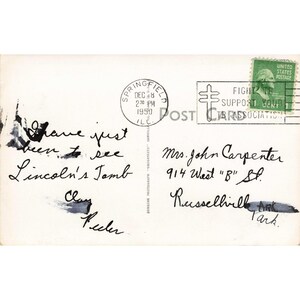 SPRINGFIELD
DEC 18
2 PM
ILL.
UNITED STATES POSTAGE
FIGHT TB
SUPPORT
ASSOCIATION
POST CARD
I have just
been to see
Lincoln's Tomb
Clay
Mrs. John Carpenter
914 West "B" St.
Russellville, Ark
Ark.